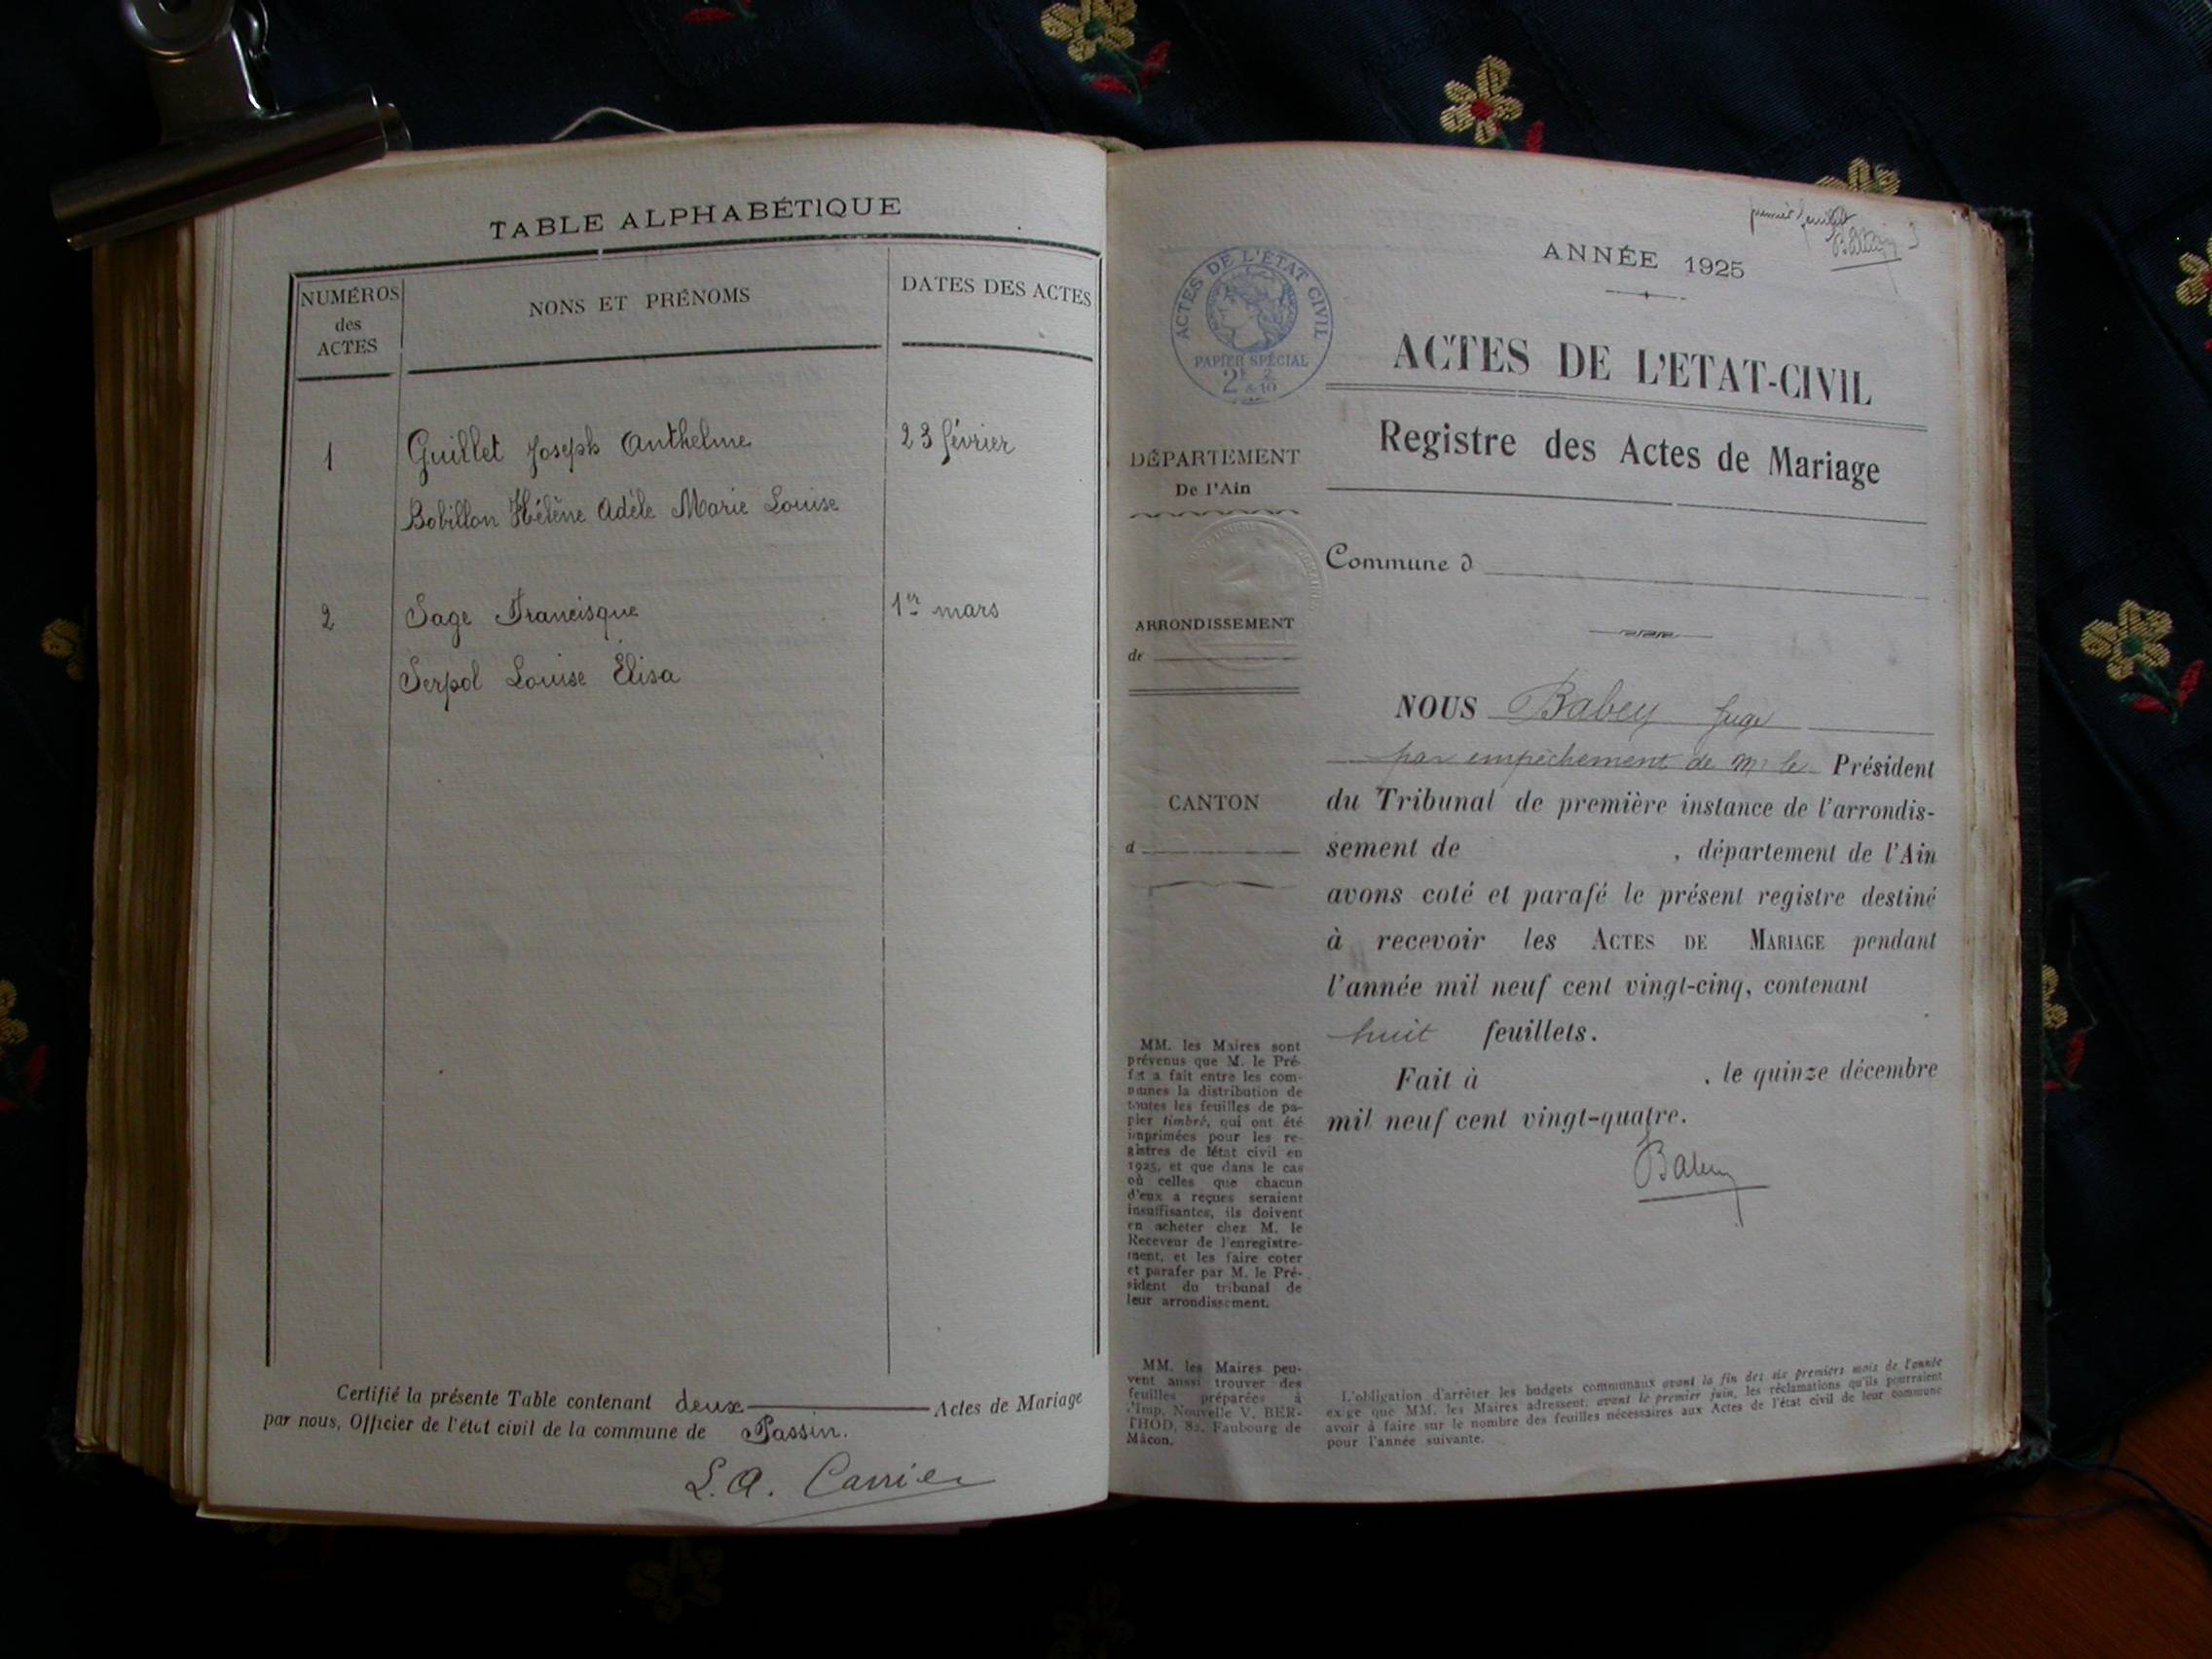 TABLE ALPHABÉTIQUE
NUMÉROS
des
ACTES
NONS ET PRÉNOMS
DATES DES ACTES
1
Guillet Joseph Anthelme
23 février
Bobillon Hélène Adèle Marie Louise
2
Sage Francisque
1er mars
Serpol Louise Élisa
Certifié la présente Table contenant deux Actes de Mariage
par nous, Officier de l'état civil de la commune de Passin.
L. A. Carrier
premier feuillet
Babey
ANNÉE 1925
ACTES DE L'ÉTAT CIVIL
PAPIER SPÉCIAL
ACTES DE L'ETAT-CIVIL
Registre des Actes de Mariage
DÉPARTEMENT
De l'Ain
Commune d
ARRONDISSEMENT
de
CANTON
d
NOUS Babey Juge
par empêchement de Mr le Président
du Tribunal de première instance de l'arrondis-
sement de , département de l'Ain
avons coté et parafé le présent registre destiné
à recevoir les ACTES DE MARIAGE pendant
l'année mil neuf cent vingt-cinq, contenant
huit feuillets.
Fait à , le quinze décembre
mil neuf cent vingt-quatre.
Babey
MM. les Maires sont
prévenus que M. le Pré-
fet a fait entre les com-
munes la distribution de
toutes les feuilles de pa-
pier timbré, qui ont été
imprimées pour les re-
gistres de l'état civil en
1925, et que dans le cas
où celles que chacun
d'eux a reçues seraient
insuffisantes, ils doivent
en acheter chez M. le
Receveur de l'enregistre-
ment, et les faire coter
et parafer par M. le Pré-
sident du tribunal de
leur arrondissement.
MM. les Maires peu-
vent aussi trouver des
feuilles préparées à
l'Imp. Nouvelle V. BER-
THOD, 82, Faubourg de
Mâcon.
L'obligation d'arrêter les budgets communaux avant la fin des six premiers mois de l'année
exige que MM. les Maires adressent, avant le premier juin, les réclamations qu'ils pourraient
avoir à faire sur le nombre des feuilles nécessaires aux Actes de l'état civil de leur commune
pour l'année suivante.